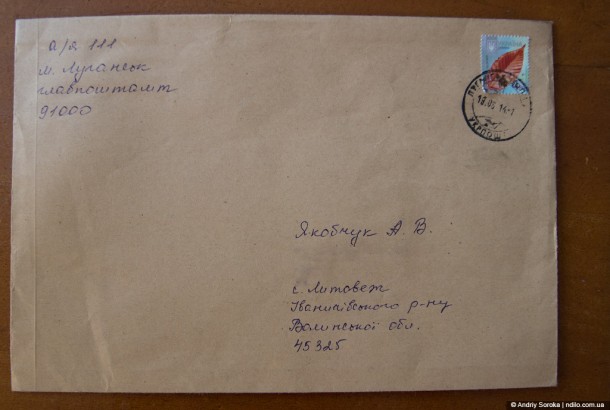 а/я 111
м. Луганськ
главпоштамт
91000
13.05.14-1
УКРПОШТ
Якобчук А. В.
с. Литовеж
Іваничівського р-ну
Волинської обл.
45326
© Andriy Soroka | ndilo.com.ua